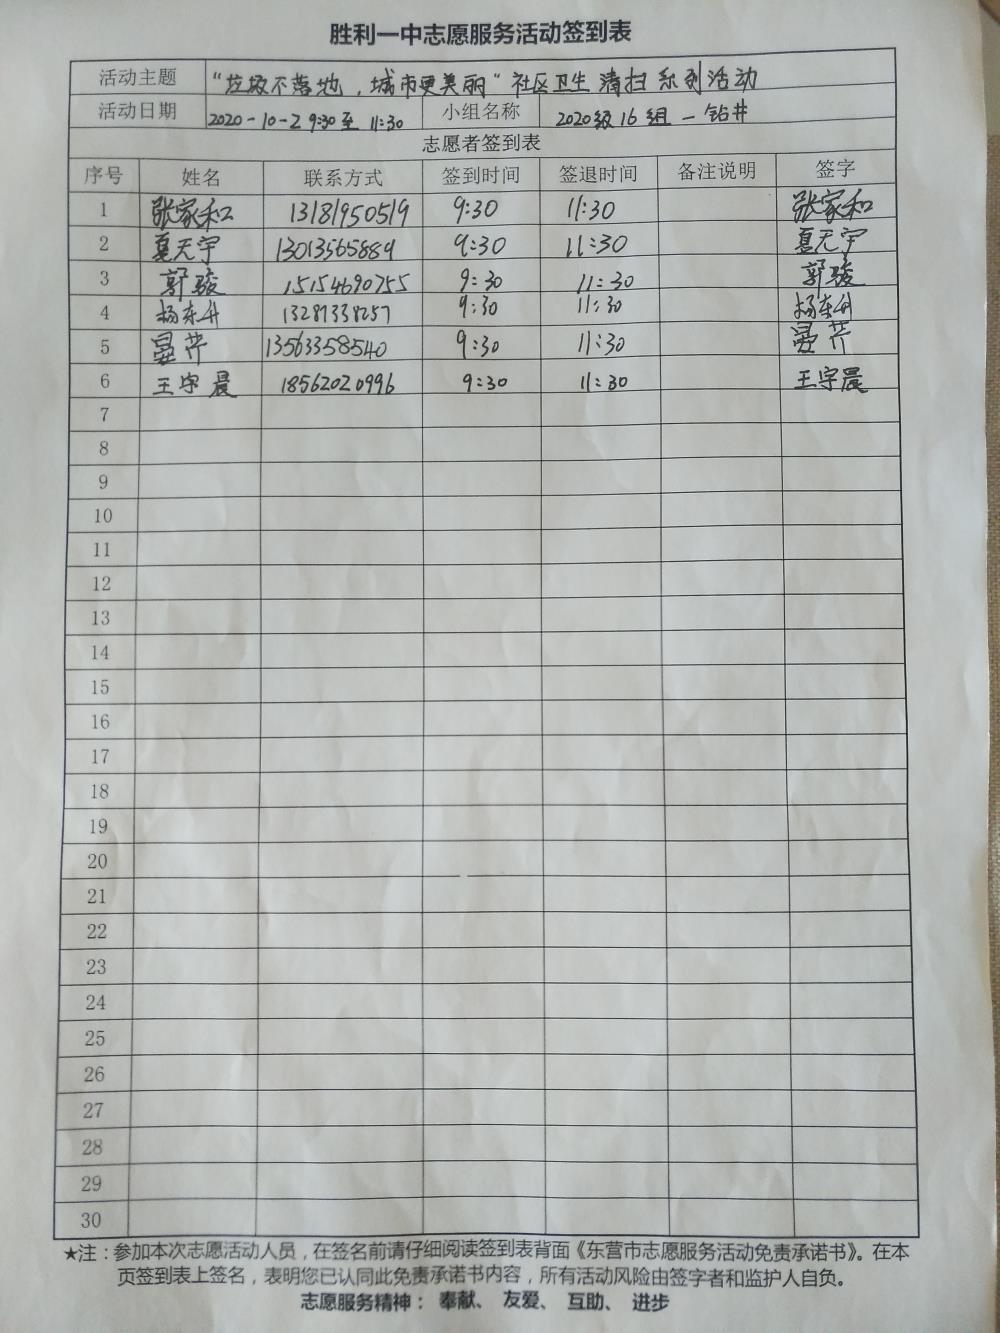 胜利一中志愿服务活动签到表
活动主题 “垃圾不落地，城市更美丽”社区卫生清扫系列活动
活动日期 2020-10-2 9:30至 11:30 小组名称 2020级16组—钻井
志愿者签到表
序号 姓名 联系方式 签到时间 签退时间 备注说明 签字
1 张家和 13181950519 9:30 11:30 张家和
2 夏天宇 13013565889 9:30 11:30 夏天宇
3 郭骏 15154690755 9:30 11:30 郭骏
4 杨东升 13281338257 9:30 11:30 杨东升
5 晏芹 13563358540 9:30 11:30 晏芹
6 王宇晨 18562020996 9:30 11:30 王宇晨
7
8
9
10
11
12
13
14
15
16
17
18
19
20
21
22
23
24
25
26
27
28
29
30
★注：参加本次志愿活动人员，在签名前请仔细阅读签到表背面《东营市志愿服务活动免责承诺书》。在本
页签到表上签名，表明您已认同此免责承诺书内容，所有活动风险由签字者和监护人自负。
志愿服务精神： 奉献、 友爱、 互助、 进步